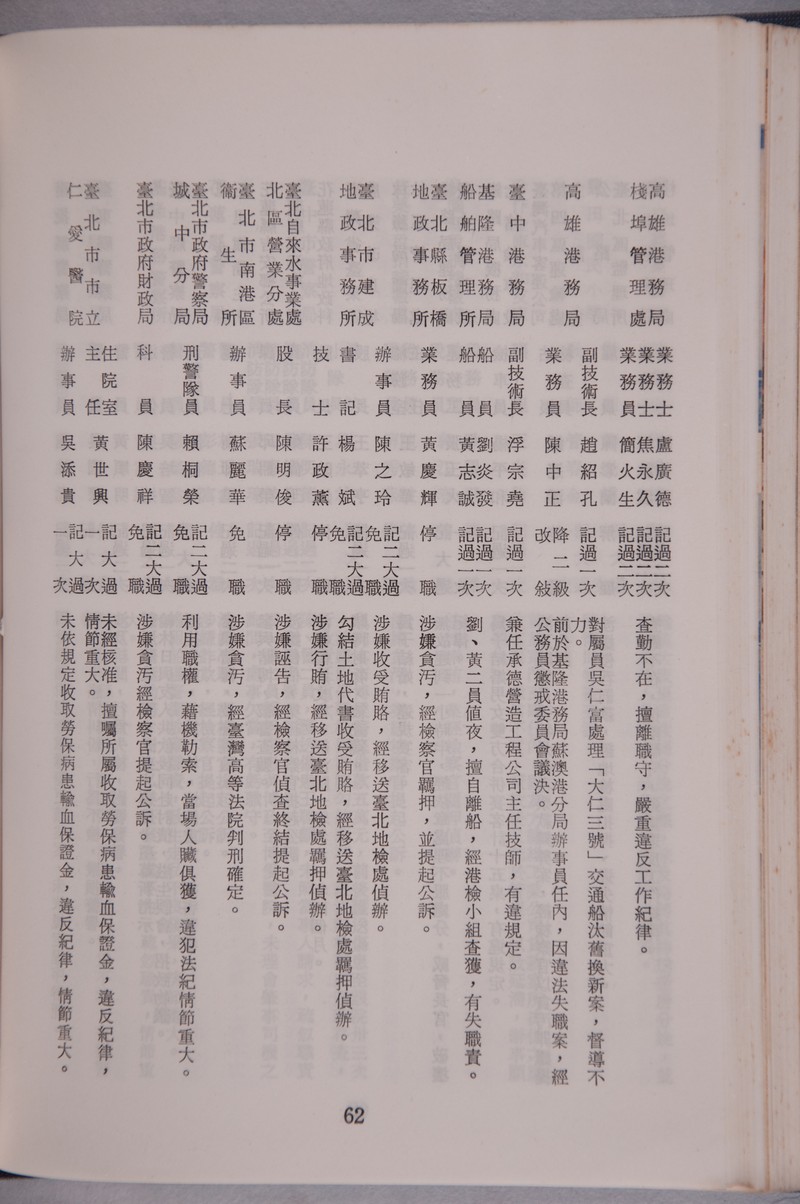 高雄港務局棧埠管理處 業務士 盧廣德 記過二次 查勤不在，擅離職守，嚴重違反工作紀律。
業務士 焦永久 記過二次
業務員 簡火生 記過二次
高雄港務局 副技術長 趙紹孔 記過一次 對屬員吳仁富處理「大仁三號」交通船汰舊換新案，督導不
力。
業務員 陳中正 降二級改敍 前於基隆港務局蘇澳港分局辦事員任內，因違法失職案，經
公務員懲戒委員會議決。
臺中港務局 副技術長 浮宗堯 記過一次 兼任承德營造工程公司主任技師，有違規定。
基隆港務局船舶管理所 船員 劉炎發 記過一次 劉、黃二員值夜，擅自離船，經港檢小組查獲，有失職責。
船員 黃志誠 記過一次
臺北縣板橋地政事務所 業務員 黃慶輝 停職 涉嫌貪汚，經檢察官羈押，並提起公訴。
臺北市建成地政事務所 辦事員 陳之玲 記二大過免職 涉嫌收受賄賂，經移送臺北地檢處偵辦。
書記 楊斌 記二大過免職 勾結土地代書收受賄賂，經移送臺北地檢處羈押偵辦。
技士 許政薰 停職 涉嫌行賄，經移送臺北地檢處羈押偵辦。
臺北自來水事業處北區營業分處 股長 陳明俊 停職 涉嫌誣告，經檢察官偵查終結提起公訴。
臺北市南港區衞生所 辦事員 蘇麗華 免職 涉嫌貪汚，經臺灣高等法院判刑確定。
臺北市政府警察局城中分局 刑警隊員 賴桐榮 記二大過免職 利用職權，藉機勒索，當場人贓俱獲，違犯法紀情節重大。
臺北市政府財政局 科員 陳慶祥 記二大過免職 涉嫌貪汚經檢察官提起公訴。
臺北市市立仁愛醫院 住院室主任 黃世興 記大過一次 未經核准，擅囑所屬收取勞保病患輸血保證金，違反紀律，
情節重大。
辦事員 吳添貴 記大過一次 未依規定收取勞保病患輸血保證金，違反紀律，情節重大。
62